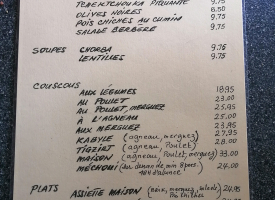 TCHENTCHOUKA PIQUANTE 9.75
OLIVES NOIRES 6.50
POIS CHICHES AU CUMIN 9.75
SALADE BERBÈRE 9.75
SOUPES CHORBA 9.75
LENTILLES 9.75
COUSCOUS
AUX LÉGUMES 18.95
AU POULET 23.00
AU POULET, MERGUEZ 25.95
À L'AGNEAU 25.00
AUX MERGUEZ 23.95
KABYLE (agneau, merguez) 27.95
TIGZIRT (agneau, Poulet) 28.00
MAISON (agneau, Poulet, merguez) 33.00
MÉCHOUI (Sur demande min 8 pers. 24.00
48H d'avance)
PLATS ASSIETTE MAISON (merguez, salade, 24.95